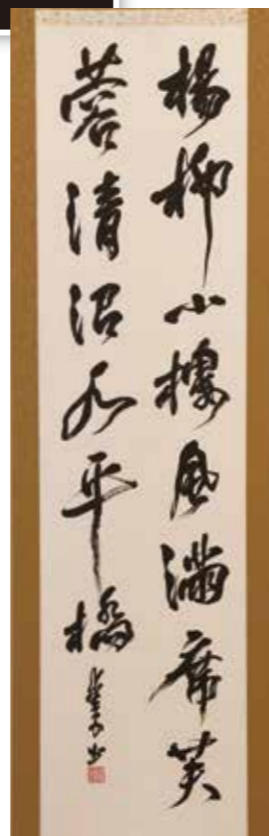 楊柳小樓風滿席芙
蓉清沼水平橋